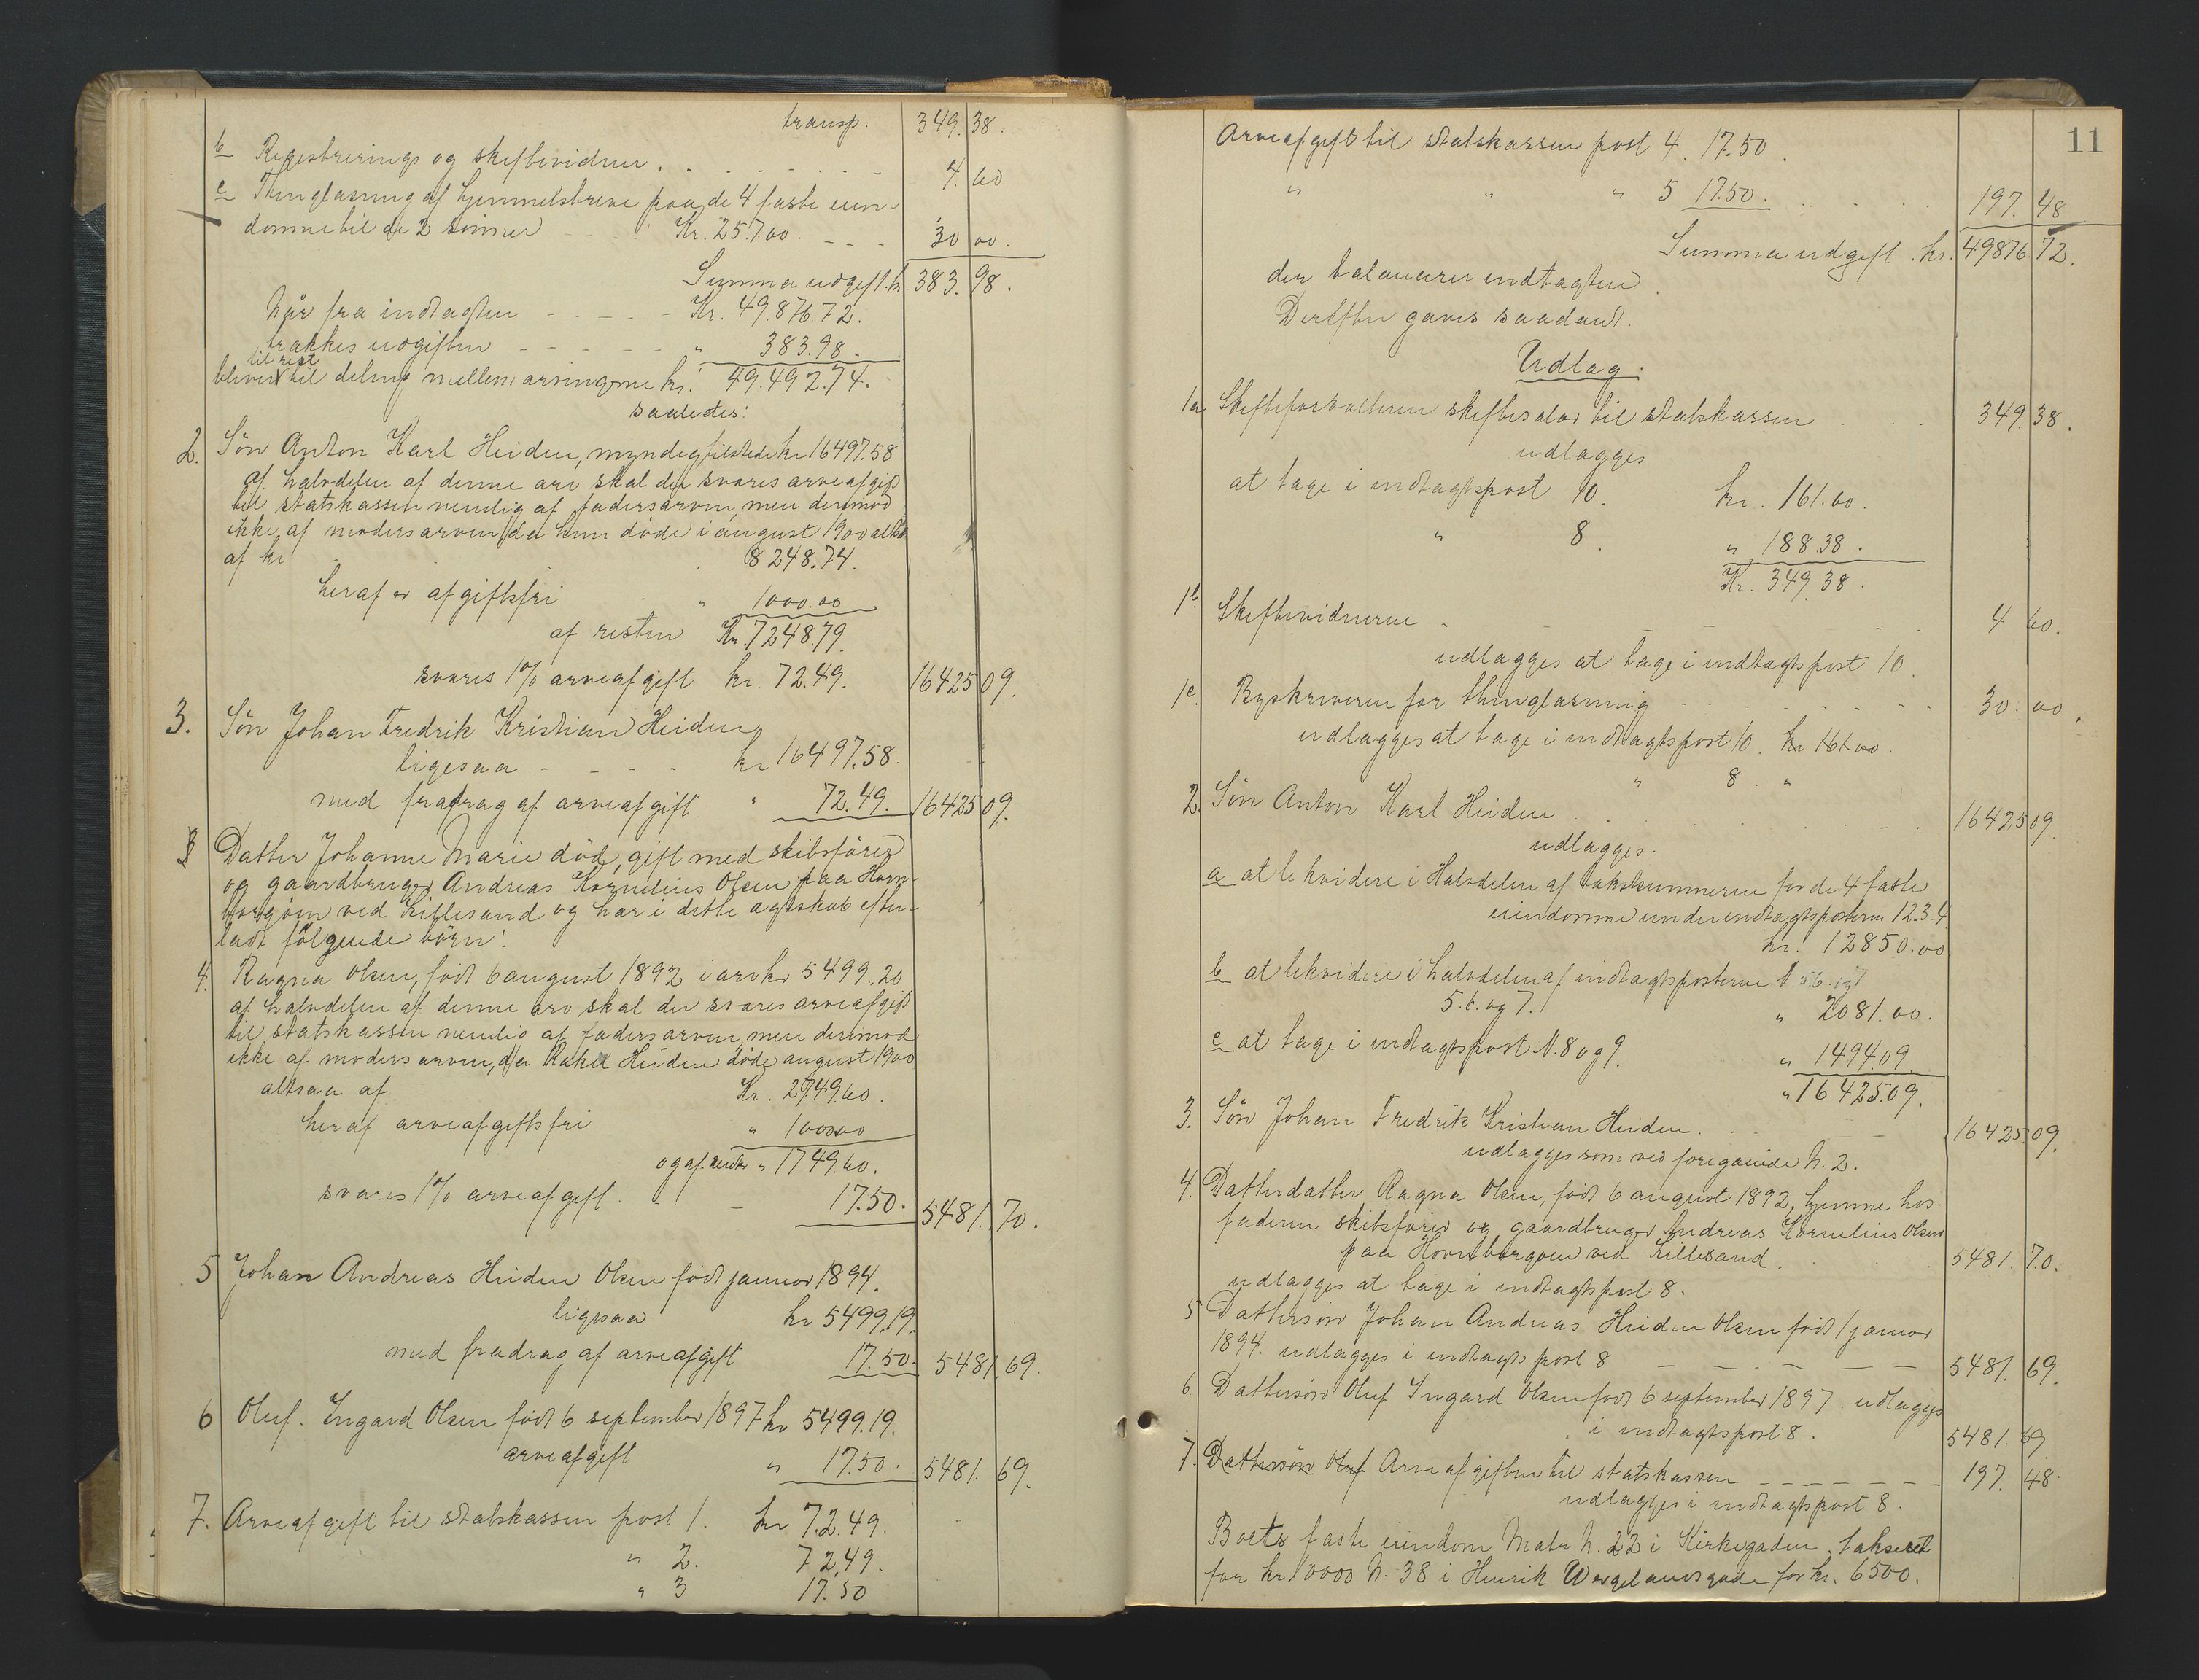 transp. 349.38.
b Registrerings og skiftevidner. 4.60
c Thinglæsning af hjemmelsbreve paa de 4 faste eien-
domme til de 2 sönner Kr. 25.700. 30 00.
Summa udgift. kr 383.98.
Når fra indtægten Kr. 49.876.72.
trækkes udgiften " 383.98.
til rest
bliver til deling mellem arvingerne kr. 49.492.74.
saaledes:
2. Sön Anton Karl Heiden, myndig tilstede kr 16497.58
af halvdelen af denne arv skal der svares arveafgift
til statskassen nemlig af fadersarven, men derimod
ikke af modersarven da hun döde i august 1900 altsaa
af kr 8248.74.
heraf er afgiftsfri " 1000.00
af resten Kr. 7248.79.
svares 1% arveafgift kr. 72.49. 16425 09.
3. Sön Johan Fredrik Kristian Heiden
ligesaa kr 16497.58.
med fradrag af arveafgift " 72.49. 16425 09.
Datter Johanne Marie död, gift med skibsförer
og gaardbruger Andreas Kornelius Olsen paa Horn-
borgöen ved Lillesand og har i dette ægteskab efter-
ladt fölgende börn:
4. Ragna Olsen, född 6 august 1892 i arv kr 5499.20
af halvdelen af denne arv skal der svares arveafgift
til statskassen nemlig af fadersarven men derimod
ikke af modersarven, da Rakel Heiden döde august 1900
altsaa af Kr. 2749.60.
heraf arveafgiftsfri " 1000.00
og af resten " 1749.60.
svares 1% arveafgift. 17.50. 5481.70.
5 Johan Andreas Heiden Olsen född januar 1894.
ligesaa kr 5499.19.
med fradrag af arveafgift 17.50. 5481.69.
6 Oluf. Ingard Olsen född 6 september 1897 kr 5499.19.
arveafgift " 17.50. 5481.69.
7. Arveafgift til statskassen post 1. kr 72.49.
" 2. 72.49.
" 3 17.50
11
Arveafgift til statskassen post 4. 17.50.
" " " 5 17.50. 197.48
Summa udgift. kr. 49876 72.
der balancerer indtægten.
Derefter gjøres saadant.
Udlæg.
1a Skifteforvalteren skiftesalær til statskassen 349.38.
udlægges
at tage i indtægtspost 10. kr. 161.00.
" 8. " 188.38.
Kr. 349.38.
1b Skiftevidnerne 4 60.
udlægges at tage i indtægtspost 10.
1c. Byskriveren for thinglæsning 30.00.
udlægges at tage i indtægtspost 10. kr 161.00.
" 8. "
2. Sön Anton Karl Heiden 16425 09.
udlægges.
a at lekvidere i Halvdelen af takstsummerne for de 4 faste
eiendomme under indtægtsposterne 1 2.3.4
kr. 12850.00
b at lekvidere i halvdelen af indtægtsposterne N 5 6. og 7
5. 6. og 7. " 2081.00.
c at tage i indtægtspost N. 8 og 9. " 1494.09.
" 16425.09.
3. Sön Johan Fredrik Kristian Heiden. 16425.09.
udlægges som ved foregaaende N. 2.
4. Datterdatter Ragna Olsen, född 6 august 1892, hjemme hos
faderen skibsförer og gaardbruger Andreas Kornelius Olsen
paa Hornborgöen ved Lillesand. 5481.70.
udlægges at tage i indtægtspost 8.
5 Dattersön Johan Andreas Heiden Olsen född 1 januar
1894. udlægges i indtægtspost 8 5481.69.
6. Dattersön Oluf Ingard Olsen född 6 september 1897. udlægges
i indtægtspost 8. 5481.69
7. Dattersön Oluf Arveafgiften til statskassen 197.48.
udlægges i indtægtspost 8.
Boets faste eiendom Matr N. 22 i Kirkegaden. takseret
for kr 10000 N. 38 i Henrik Wergelandsgade for kr. 6500.